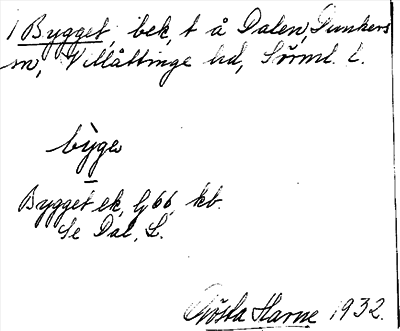 1 Bygget, bek, t å Dalen, Dunkers
sn, Villåttinge hd, Sörml. l.
bỳgə
Bygget ek, G 66, kb.
Se Dal, L.
Gösta Harne 1932.